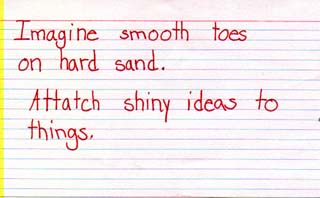 Imagine smooth toes
on hard sand.
Attatch shiny ideas to
things.